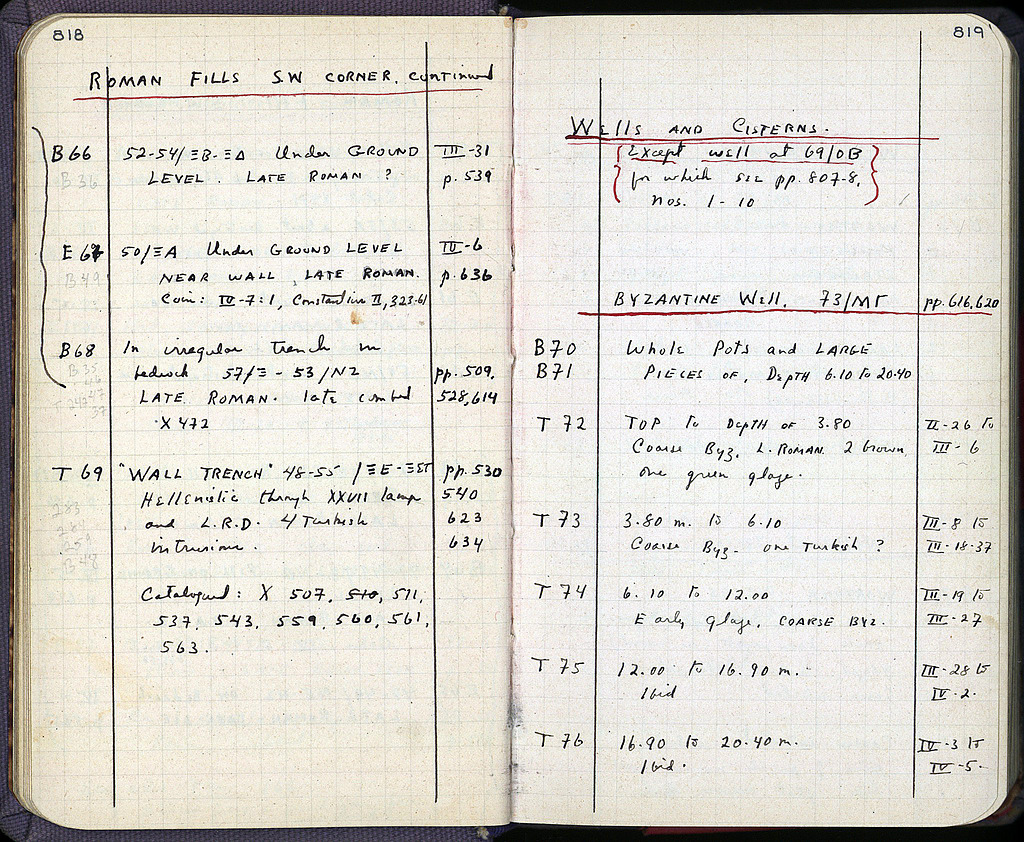 818
ROMAN FILLS SW CORNER, continued
B 66 52-54/ΞB-ΞΔ Under GROUND III-31
B 36 LEVEL. LATE ROMAN ? p. 539
E 67 50/ΞA Under GROUND LEVEL IV-6
B 49 NEAR WALL, LATE ROMAN. p. 636
Coin: IV-7:1, Constantine II, 323-61
B 68 In irregular trench in
B 35 bedrock 57/Ξ - 53/NZ pp. 509,
LATE ROMAN. late combed 528, 614
X 472
T 69 "WALL TRENCH" 48-55 /ΞE-ΞST pp. 530
Hellenistic through XXVII lamp 540
283 and L.R.D. 4 Turkish 623
intrusions. 634
B 48
Catalogued: X 507, 510, 511,
537, 543, 559, 560, 561,
563.
819
Wells AND CISTERNS.
{Except well at 69/ΟΒ}
for which see pp. 807-8,
nos. 1-10
BYZANTINE Well, 73/ΜΓ pp. 616, 620
B 70 Whole Pots and LARGE
B 71 PIECES OF, DEPTH 6.10 to 20.40
T 72 TOP to DEPTH OF 3.80 II-26 to
Coarse Byz, L. ROMAN. 2 brown, III-6
one green glaze.
T 73 3.80 m. to 6.10 III-8 to
Coarse Byz- one Turkish ? III-18-37
T 74 6.10 to 12.00 III-19 to
Early glaze, COARSE BYZ. III-27
T 75 12.00 to 16.90 m. III-28 to
Ibid IV-2.
T 76 16.90 to 20.40 m. IV-3 to
Ibid. IV-5.